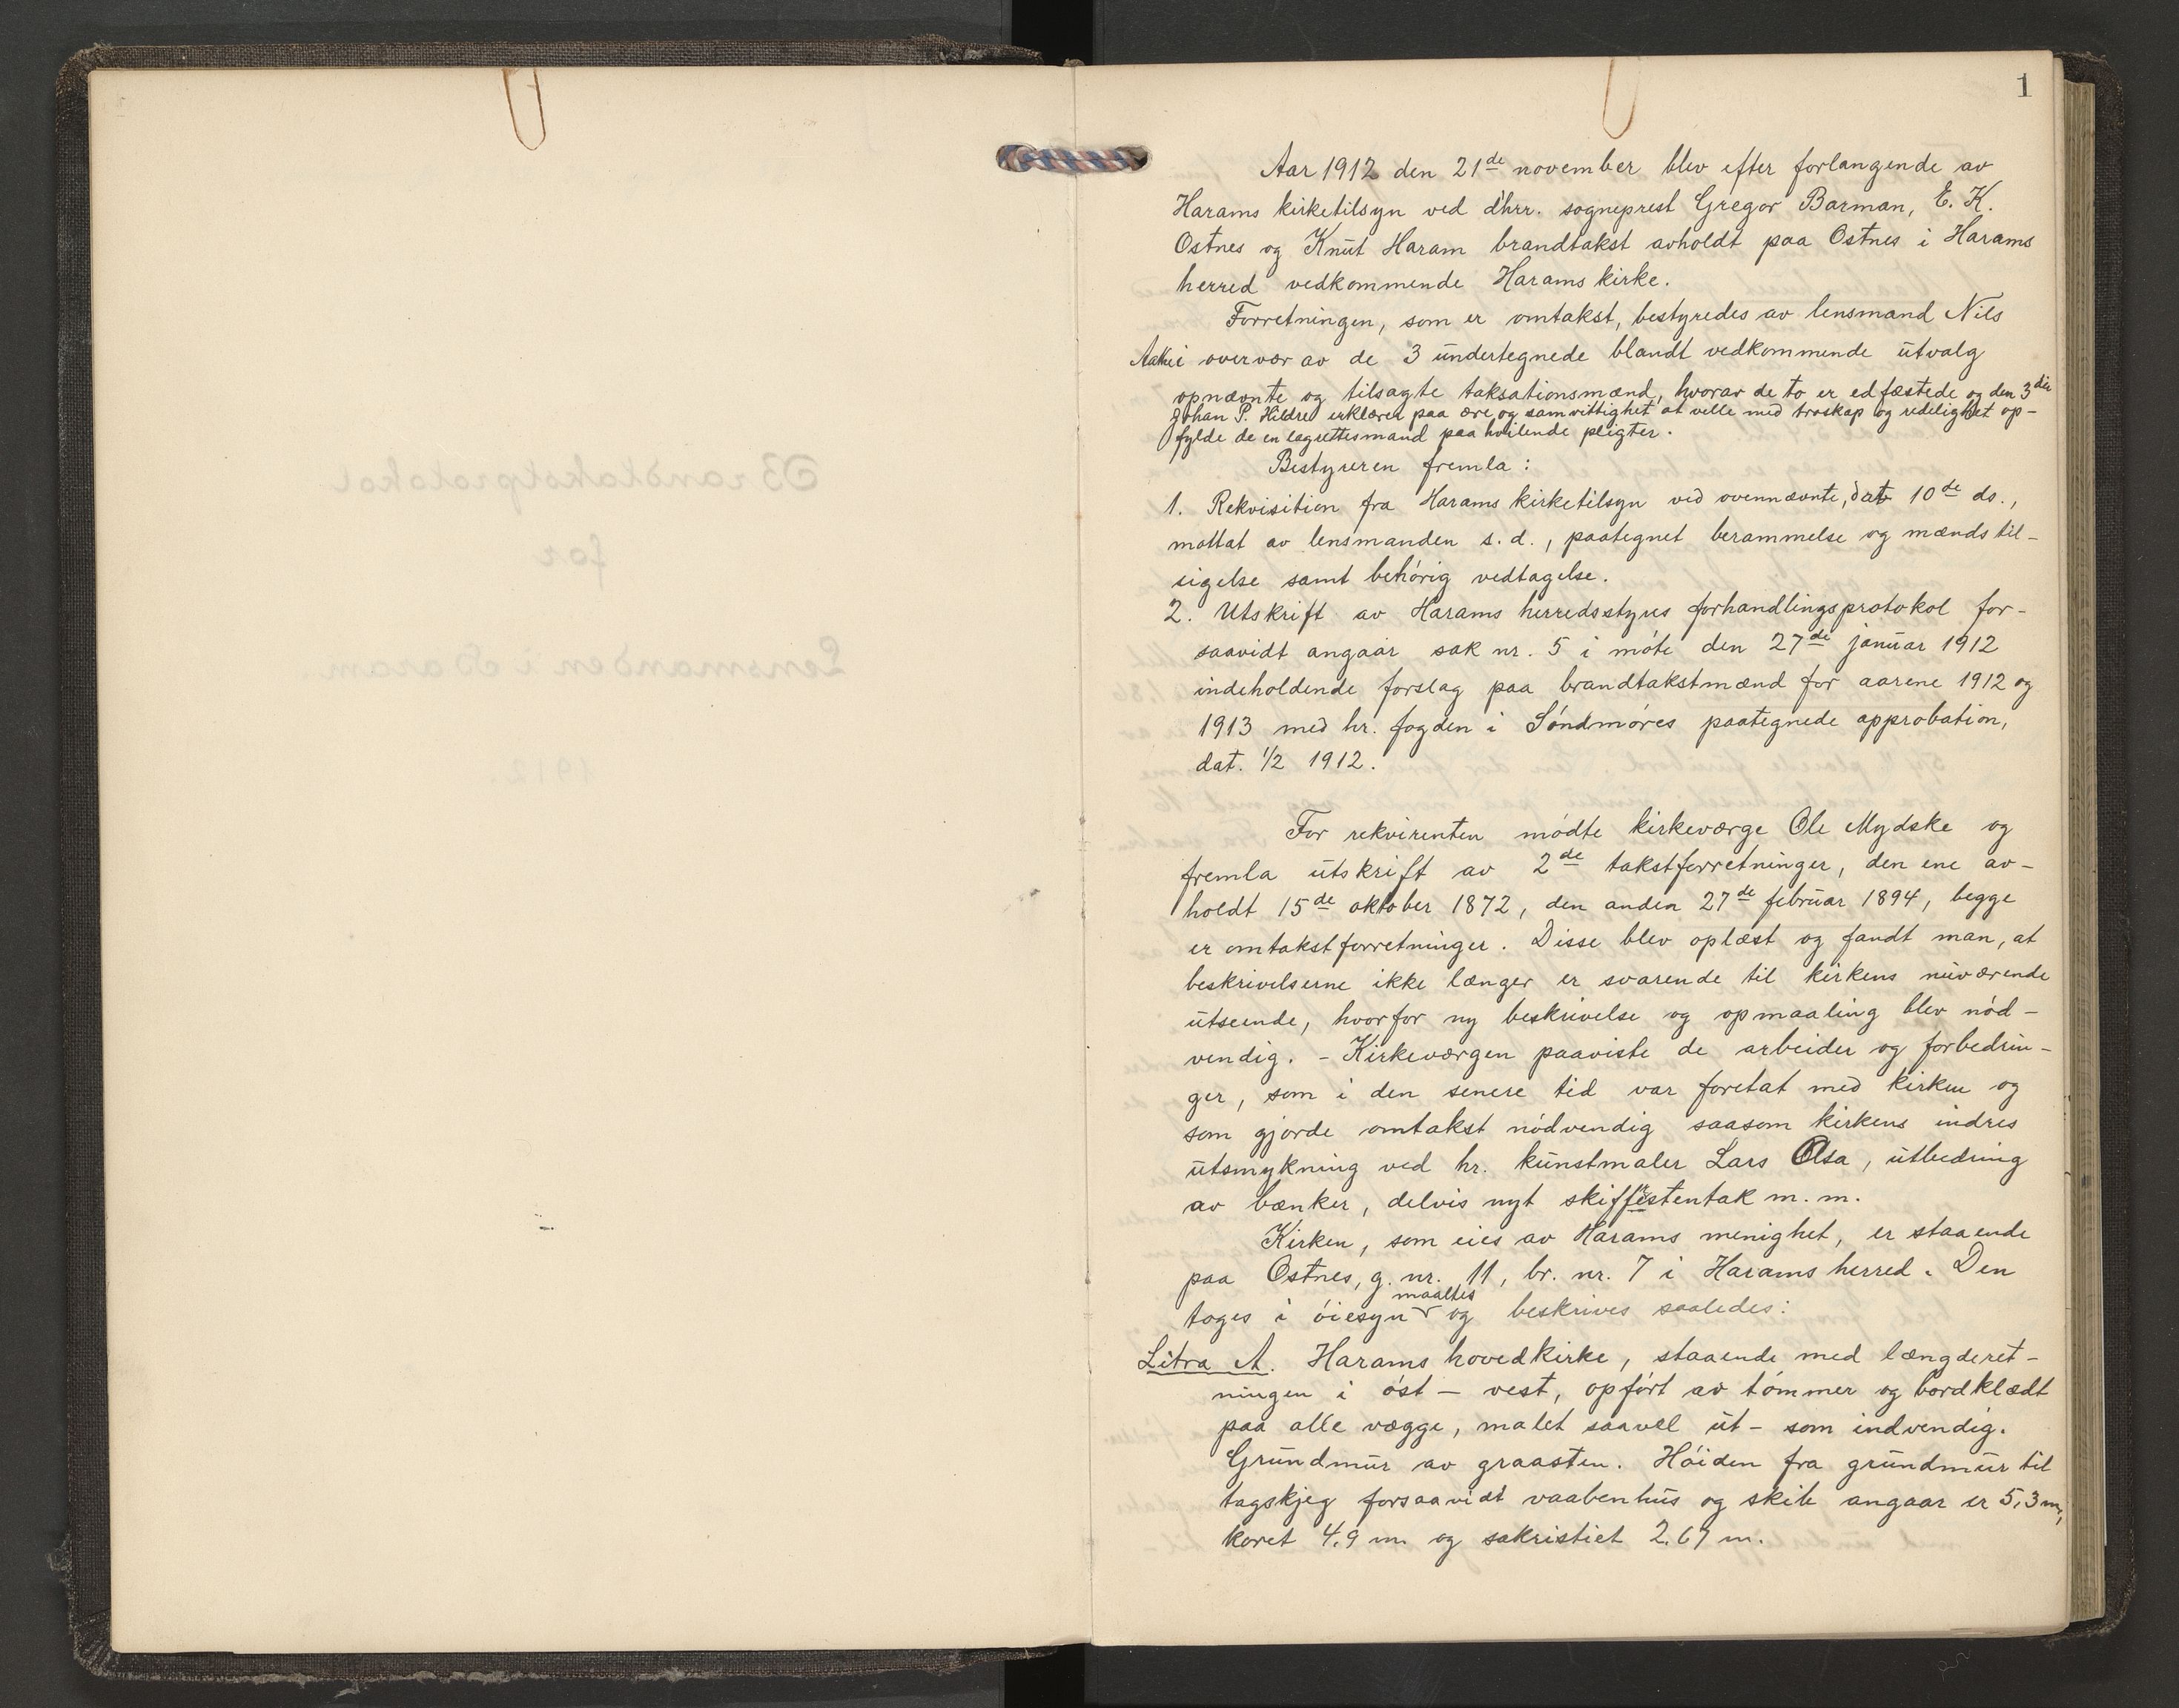 1
Aar 1912 den 21de november blev efter forlangende av
Harams kirketilsyn ved d'hrr. sogneprest Gregor Barman, E. K.
Ostnes og Knut Haram brandtakst avholdt paa Ostnes i Harams
herred vedkommende Harams kirke.
Forretningen, som er omtakst, bestyredes av lensmand Nils
i overvær av de 3 undertegnede blandt vedkommende utvalg
opnævnte og tilsagte taksationsmænd, hvorav de to er edfæstede og den 3die
Johan P. Hildre erklærer paa ære og samvittighet at ville med troskap og redelighet op-
fylde de en lagrettesmand paa hvilende pligter.
Bestyreren fremla:
1. Rekvisition fra Harams kirketilsyn ved ovennævnte, dat 10de ds.,
mottat av lensmanden s. d., paategnet berammelse og mænds til-
sigelse samt behörig vedtagelse.
2. Utskrift av Harams herredsstyres forhandlingsprotokol for-
saavidt angaar sak nr. 5 i möte den 27de januar 1912
indeholdende forslag paa brandtakstmænd for aarene 1912 og
1913 med hr. fogden i Söndmöres paategnede approbation,
dat. 1/2 1912.
For rekvirenten mödte kirkeværge Ole Mydske og
fremla utskrift av 2de takstforretninger, den ene av-
holdt 15de oktober 1872, den anden 27de februar 1894, begge
er omtakstforretninger. Disse blev oplæst og fandt man, at
beskrivelserne ikke længer er svarende til kirkens nuværende
utseende, hvorfor ny beskrivelse og opmaaling blev nöd-
vendig. - Kirkeværgen paaviste de arbeider og forbedrin-
ger, som i den senere tid var foretat med kirken og
som gjorde omtakst nödvendig saasom kirkens indres
utsmykning ved hr. kunstmaler Lars Osa, utbedring
av bænker, delvis nyt skifferstentak m. m.
Kirken, som eies av Harams menighet, er staaende
paa Ostnes, g. nr. 11, br. nr. 7 i Harams herred. Den
maaltes
toges i öiesyn og beskrives saaledes:
Litra A. Harams hovedkirke, staaende med længderet-
ningen i öst - vest, opfört av tömmer og bordklædt
paa alle vægge, malet saavel ut- som indvendig.
Grundmur av graasten. Höiden fra grundmur til
tagskjeg forsaavidt vaabenhus og skib angaar er 5,3 m,
koret 4,9 m. og sakristiet 2.67 m.